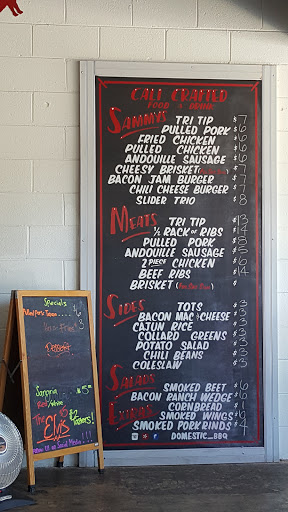 CALI CRAFTED
FOOD & DRINK
SAMMYS TRI TIP $7
PULLED PORK $6
FRIED CHICKEN $6
PULLED CHICKEN $6
ANDOUILLE SAUSAGE $6
CHEESY BRISKET $7
BACON JAM BURGER $7
CHILI CHEESE BURGER $7
SLIDER TRIO $8
MEATS TRI TIP $13
½ RACK OF RIBS
PULLED PORK
ANDOUILLE SAUSAGE
2 PIECE CHICKEN $6
BEEF RIBS $14
BRISKET
SIDES TOTS $3
BACON MAC & CHEESE $3
CAJUN RICE $3
COLLARD GREENS $3
POTATO SALAD $3
CHILI BEANS $3
COLESLAW $3
SALADS SMOKED BEET $6
BACON RANCH WEDGE $6
EXTRAS CORNBREAD
SMOKED WINGS
SMOKED PORK RINDS $4
DOMESTIC_BBQ
Specials
Dessert
Sangria $5
Red/White
The $2
Elvis
on Social Media